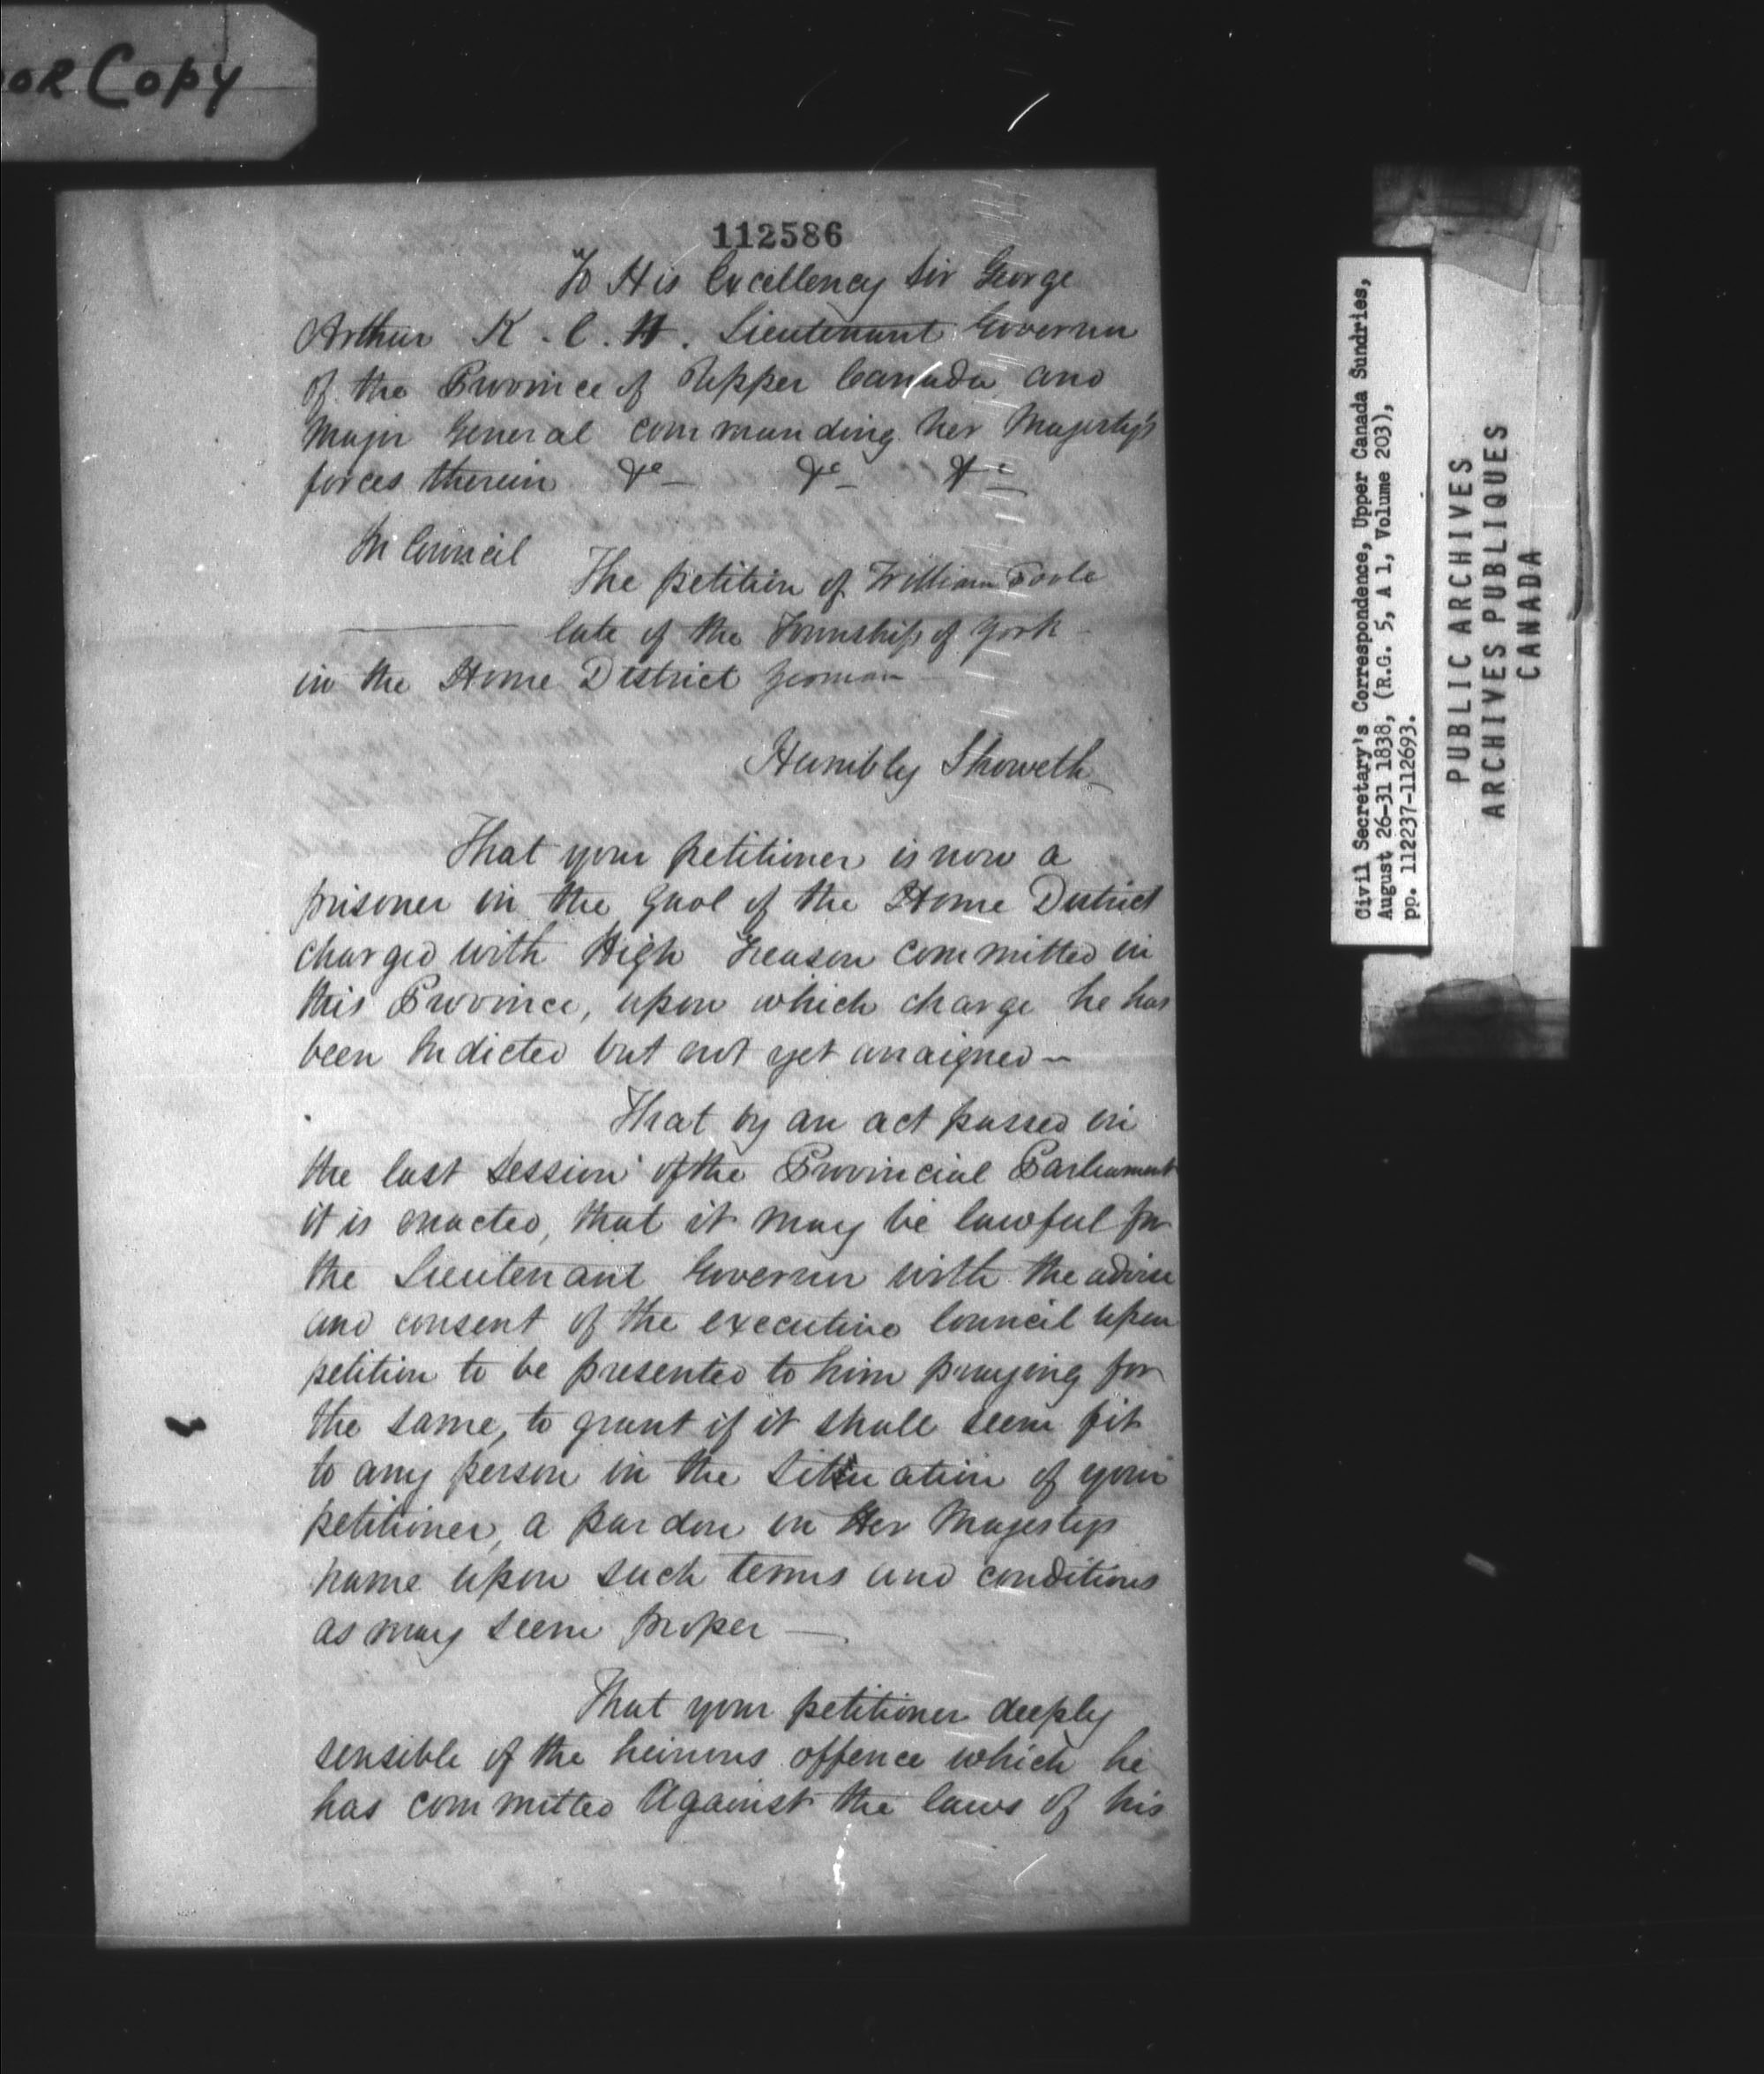 OOR COPY
112586
To His Excellency Sir George
Arthur K. C. H. Lieutenant Governor
of the Province of Upper Canada and
Major General commanding her Majesty's
forces therein &c &c &c
In Council
The petition of William Poole
late of the Township of York
in the Home District Yeoman
Humbly Showeth
That your petitioner is now a
prisoner in the Gaol of the Home District
charged with High Treason committed in
this Province, upon which charge he has
been Indicted but not yet arraigned —
That by an act passed in
the last Session of the Provincial Parliament
it is enacted, that it may be lawful for
the Lieutenant Governor with the advice
and consent of the executive Council upon
petition to be presented to him praying for
the same, to grant if it shall seem fit
to any person in the situation of your
petitioner, a pardon in Her Majestys
name upon such terms and conditions
as may seem proper —
That your petitioner deeply
sensible of the heinous offence which he
has committed Against the laws of his
Civil Secretary's Correspondence, Upper Canada Sundries,
August 26-31 1838, (R.G. 5, A 1, Volume 203),
pp. 112237-112693.
PUBLIC ARCHIVES
ARCHIVES PUBLIQUES
CANADA